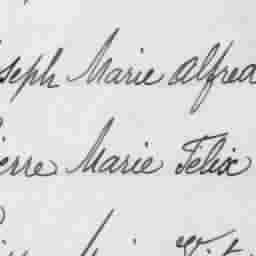 oseph Marie Alfred
ierre Marie Félix